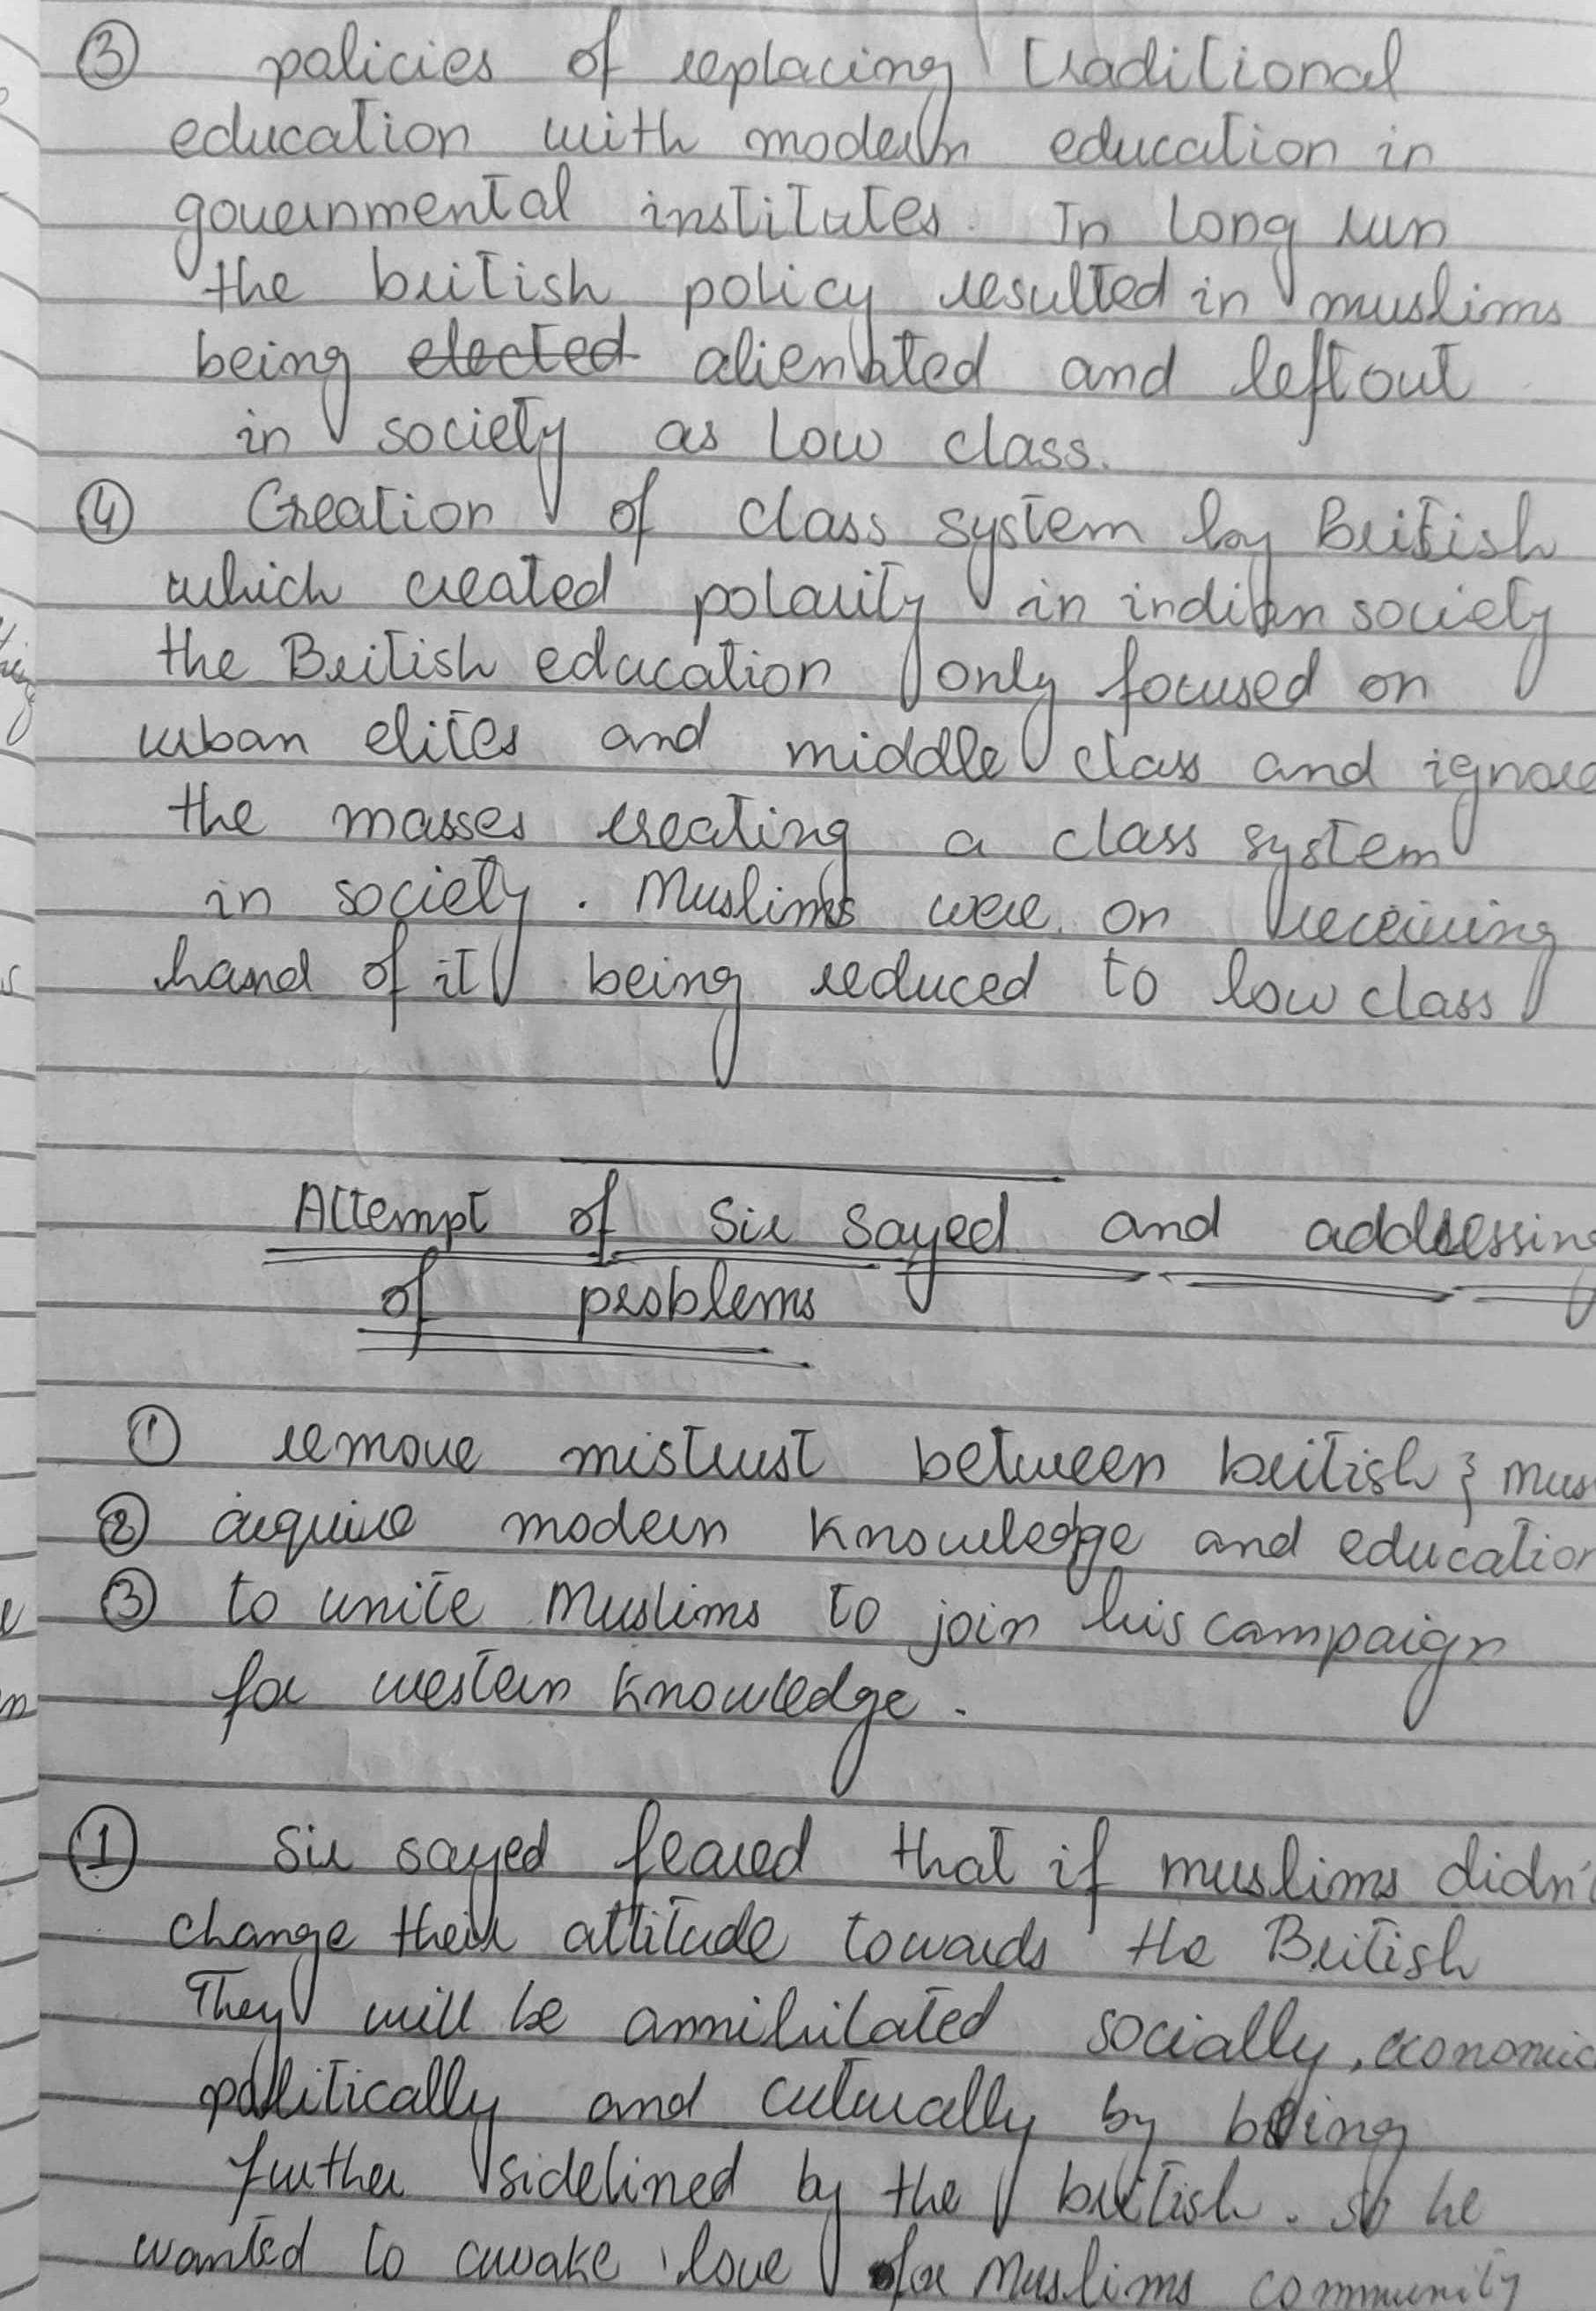 ③ policies of replacing traditional
education with modern education in
governmental institutes. In long run
the british policy resulted in muslims
being elected alienated and leftout
in society as low class.
④ Creation of class system by British
which created polarity in indian society
the British education only focused on
urban elites and middle class and ignore
the masses creating a class system
in society. Muslims were on receiving
hand of it being reduced to low class
Attempt of Sir Sayed and addressing
of problems
① remove mistrust between british & mus
② acquire modern knowledge and education
③ to unite Muslims to join his campaign
for western knowledge.
① Sir sayed feared that if muslims didn't
change their attitude towards the British
They will be annihilated socially, economic
politically and culturally by being
further sidelined by the british. so he
wanted to awake love for Muslims community